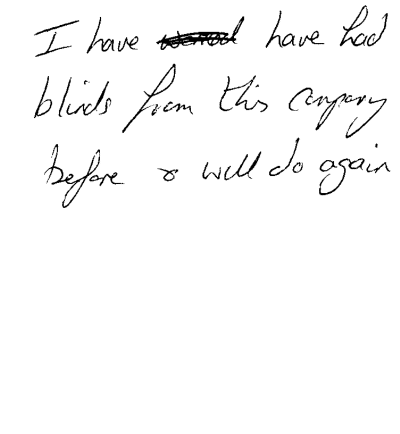 I have have had
blinds from this company
before & will do again